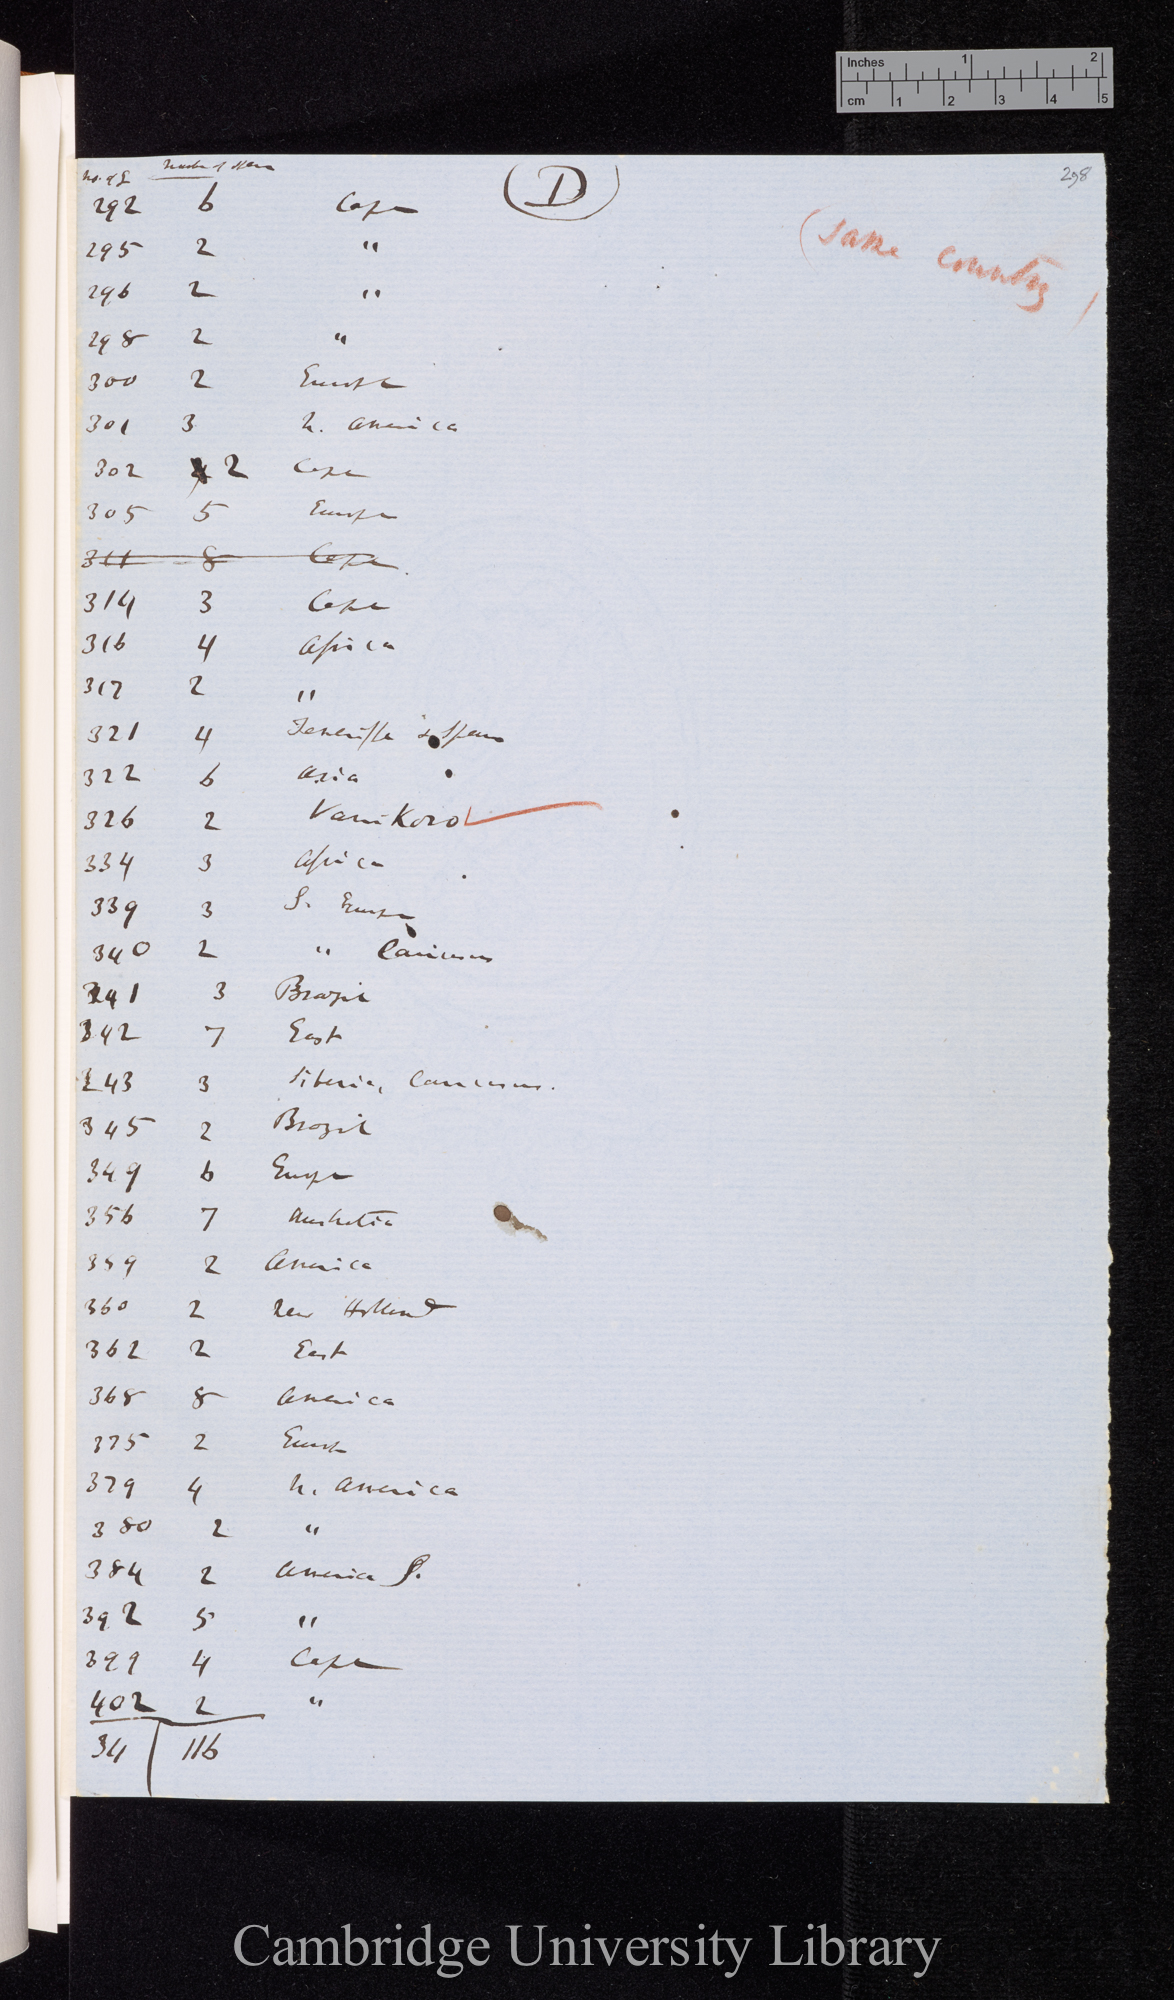 Inches 1 2
cm 1 2 3 4 5
298
(D)
No. of G Number of species
(same country)
292 6 Cape
295 2 "
296 2 "
298 2 "
300 2 Europe
301 3 N. America
302 4 2 Cape
305 5 Europe
311 8 Cape
314 3 Cape
316 4 Africa
317 2 "
321 4 Teneriffe & Spain
322 6 Asia
326 2 Vanikoro
334 3 Africa
339 3 S. Europe
340 2 " Caucasus
341 3 Brazil
342 7 East
343 3 Siberia, Caucasus.
345 2 Brazil
349 6 Europe
356 7 Australia
359 2 America
360 2 New Holland
362 2 East
368 8 America
375 2 Europe
379 4 N. America
380 2 "
384 2 America S.
392 5 "
399 4 Cape
402 2 "
34 116
Cambridge University Library